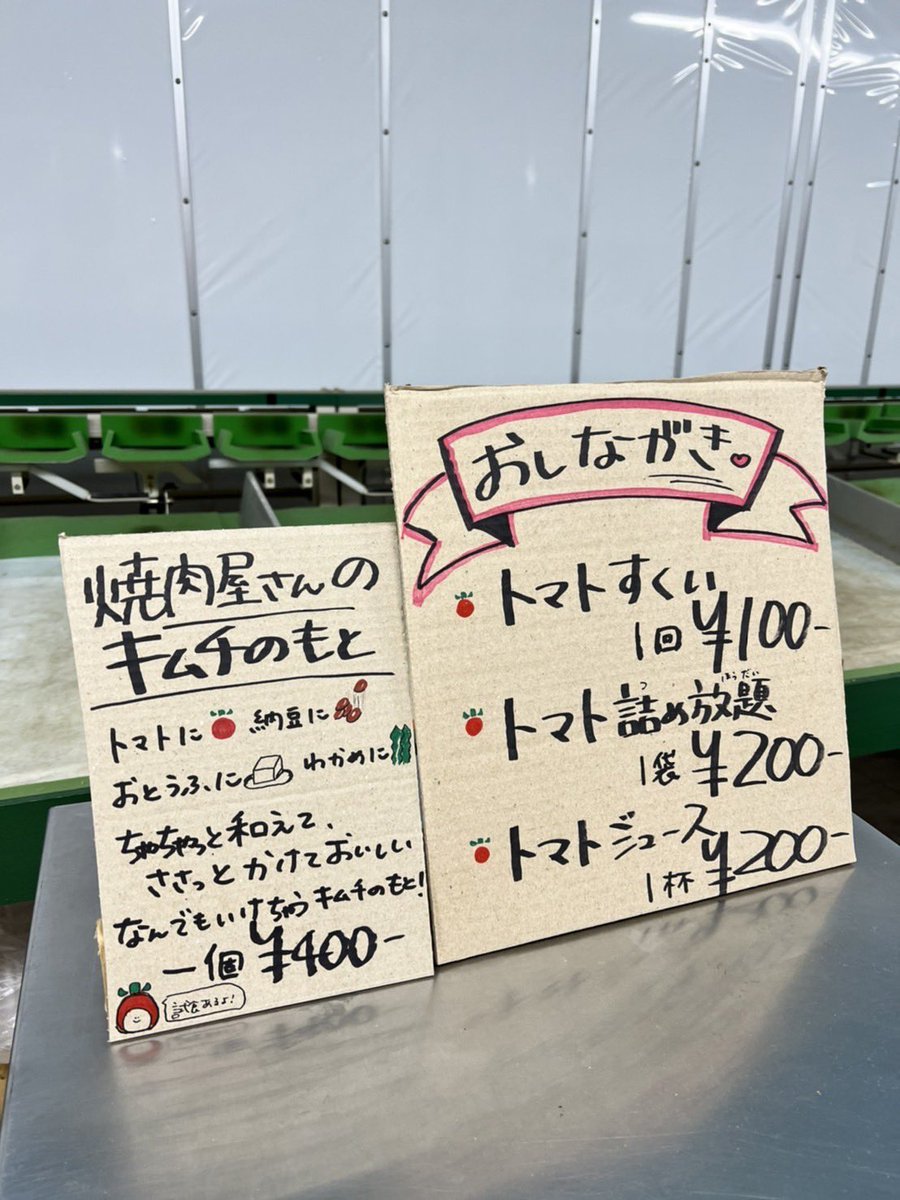 焼肉屋さんの
キムチのもと
トマトに 納豆に
おとうふに わかめに
ちゃちゃっと和えて、
ささっとかけておいしい
なんでもいけちゃうキムチのもと!
一個 ¥400-
試食あるよ!
おしながき
トマトすくい
1回 ¥100-
トマト詰め放題
つ ほうだい
1袋 ¥200-
トマトジュース
1杯 ¥200-